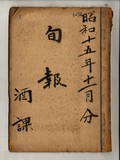 昭和十五年十一月分
旬報
酒課